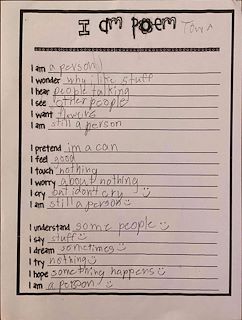 I am poem
I am a person
I wonder why i like stuff
I hear people talking
I see other people
I want
I am still a person
I pretend im a can
I feel good
I touch nothing
I worry about nothing
I cry but i dont cry
I am still a person
I understand some people
I say stuff
I dream sometimes
I try nothing
I hope something happens
I am a person